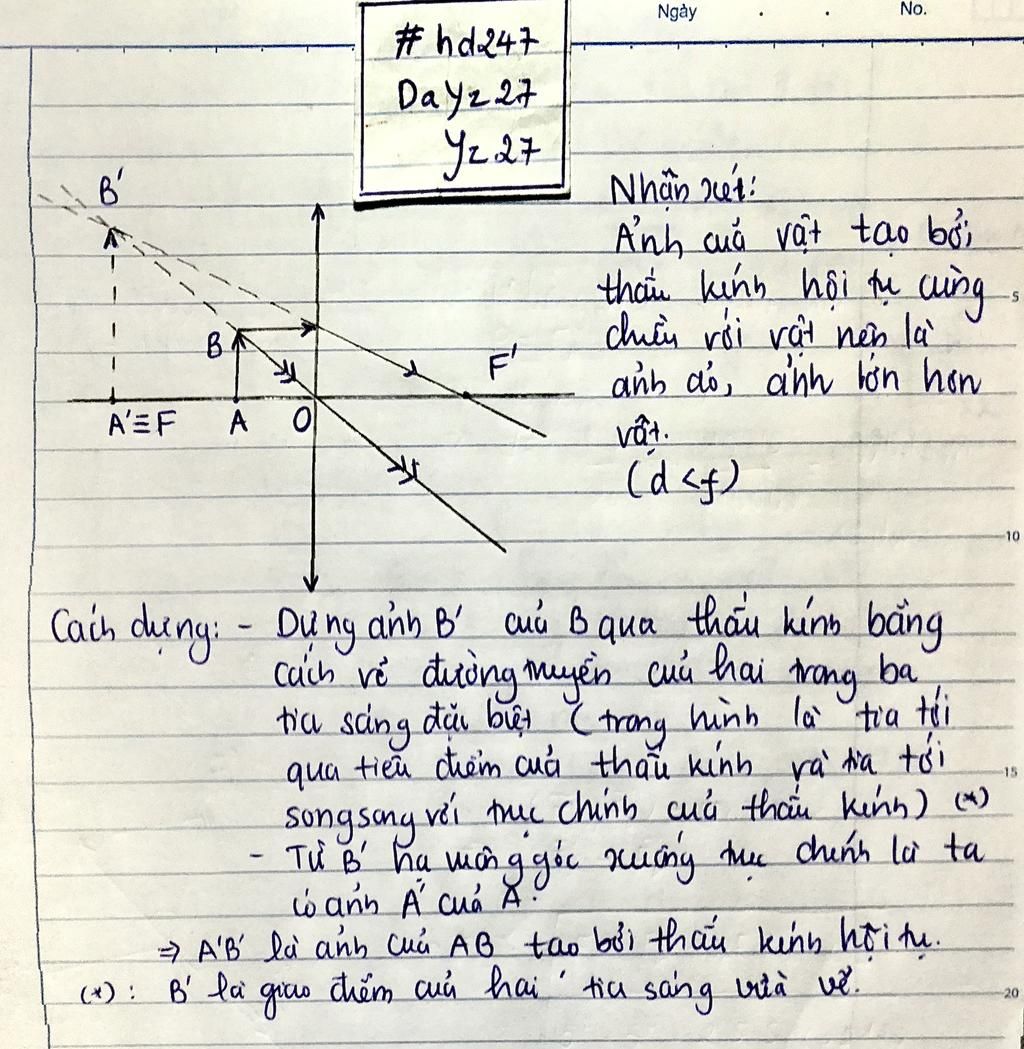 Ngày . . No.
# hd247
DaYz27
Yz27
B'
B
F'
A'≡F
A
O
Nhận xét:
Ảnh của vật tạo bởi
thấu kính hội tụ cùng
chiều với vật nên là
ảnh ảo, ảnh lớn hơn
vật.
(d < f)
5
10
Cách dựng: - Dựng ảnh B' của B qua thấu kính bằng
cách vẽ đường truyền của hai trong ba
tia sáng đặc biệt (trong hình là tia tới
qua tiêu điểm của thấu kính và tia tới
15
song song với trục chính của thấu kính) (*)
- Từ B' hạ vuông góc xuống trục chính là ta
có ảnh A' của A.
⇒ A'B' là ảnh của AB tạo bởi thấu kính hội tụ.
(*): B' là giao điểm của hai tia sáng vừa vẽ.
20